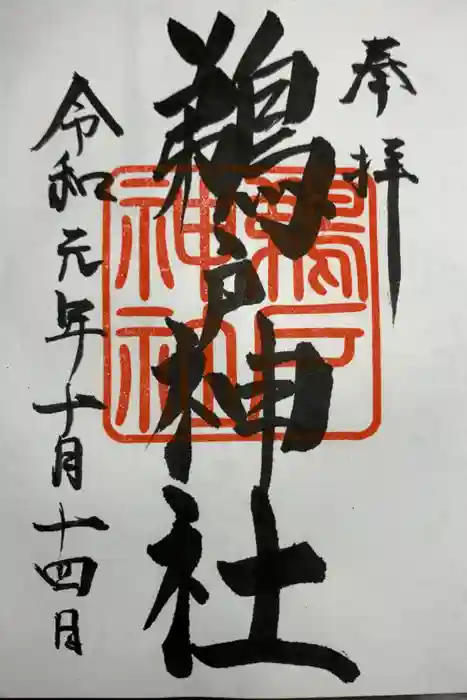 奉拝
鵜戸神社
令和元年十月十四日
鵜戸
神社